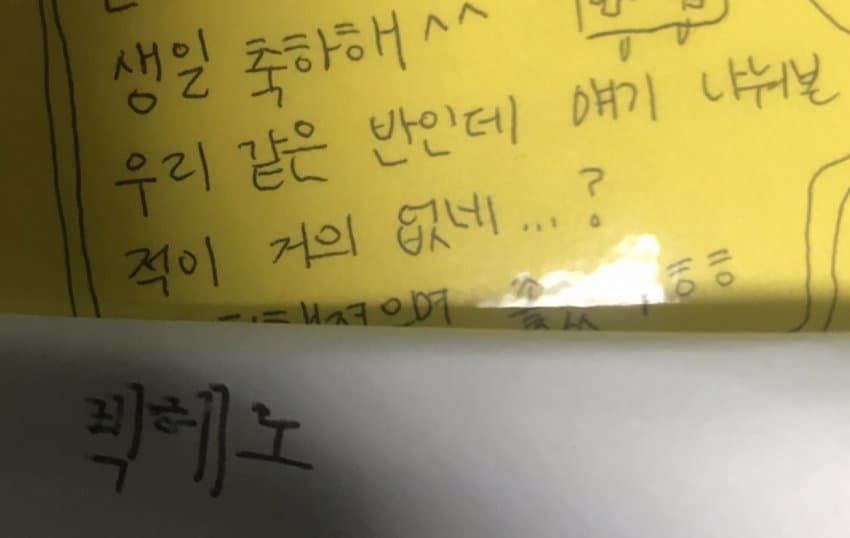 생일 축하해^^
우리 같은 반인데 얘기 나눠본
적이 거의 없네...?
ㅎㅎ